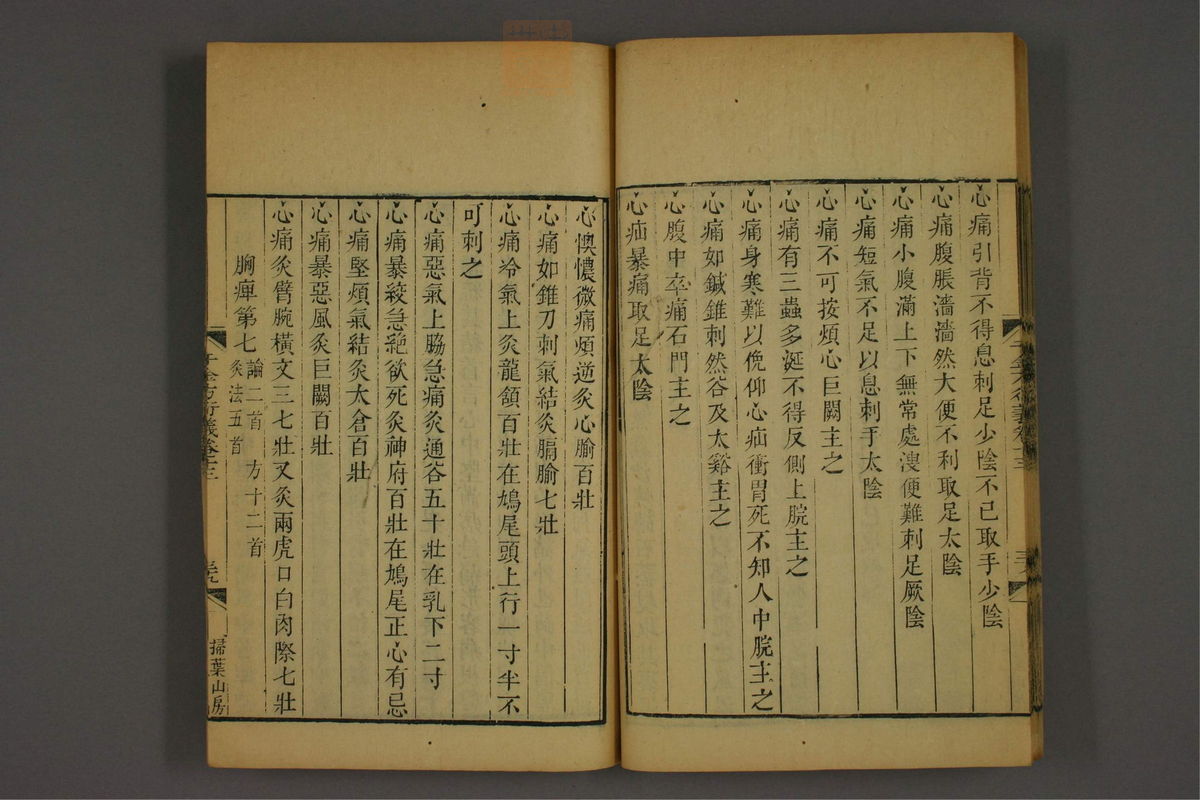 心痛引背不得息刺足少陰不已取手少陰
心痛腹脹濇濇然大便不利取足太陰
心痛小腹滿上下無常處溲便難刺足厥陰
心痛短氣不足以息刺手太陰
心痛不可按煩心巨闕主之
心痛有三蟲多涎不得反側上脘主之
心痛身寒難以俛仰心疝衝冒死不知人中脘主之
心痛如鍼錐刺然谷及太谿主之
心腹中卒痛石門主之
心疝暴痛取足太陰
心懊憹微痛煩逆灸心腧百壯
心痛如錐刀刺氣結灸膈腧七壯
心痛冷氣上灸龍頷百壯在鳩尾頭上行一寸半不
可刺之
心痛惡氣上脇急痛灸通谷五十壯在乳下二寸
心痛暴絞急絶欲死灸神府百壯在鳩尾正心有忌
心痛堅煩氣結灸太倉百壯
心痛暴惡風灸巨闕百壯
心痛灸臂腕橫文三七壯又灸兩虎口白肉際七壯
胸痺第七 論二首 方十二首
灸法五首
千金方衍義卷十三
三九
掃葉山房